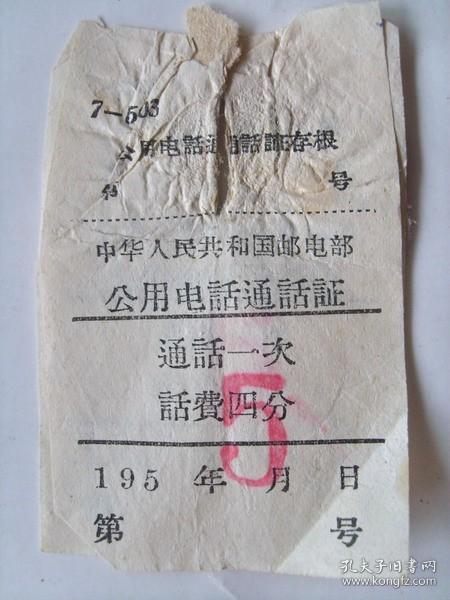 7-503
公用电話通話証存根
第 号
中华人民共和国邮电部
公用电話通話証
通話一次
話費四分
5
195 年 月 日
第 号
孔夫子旧书网
www.kongfz.com